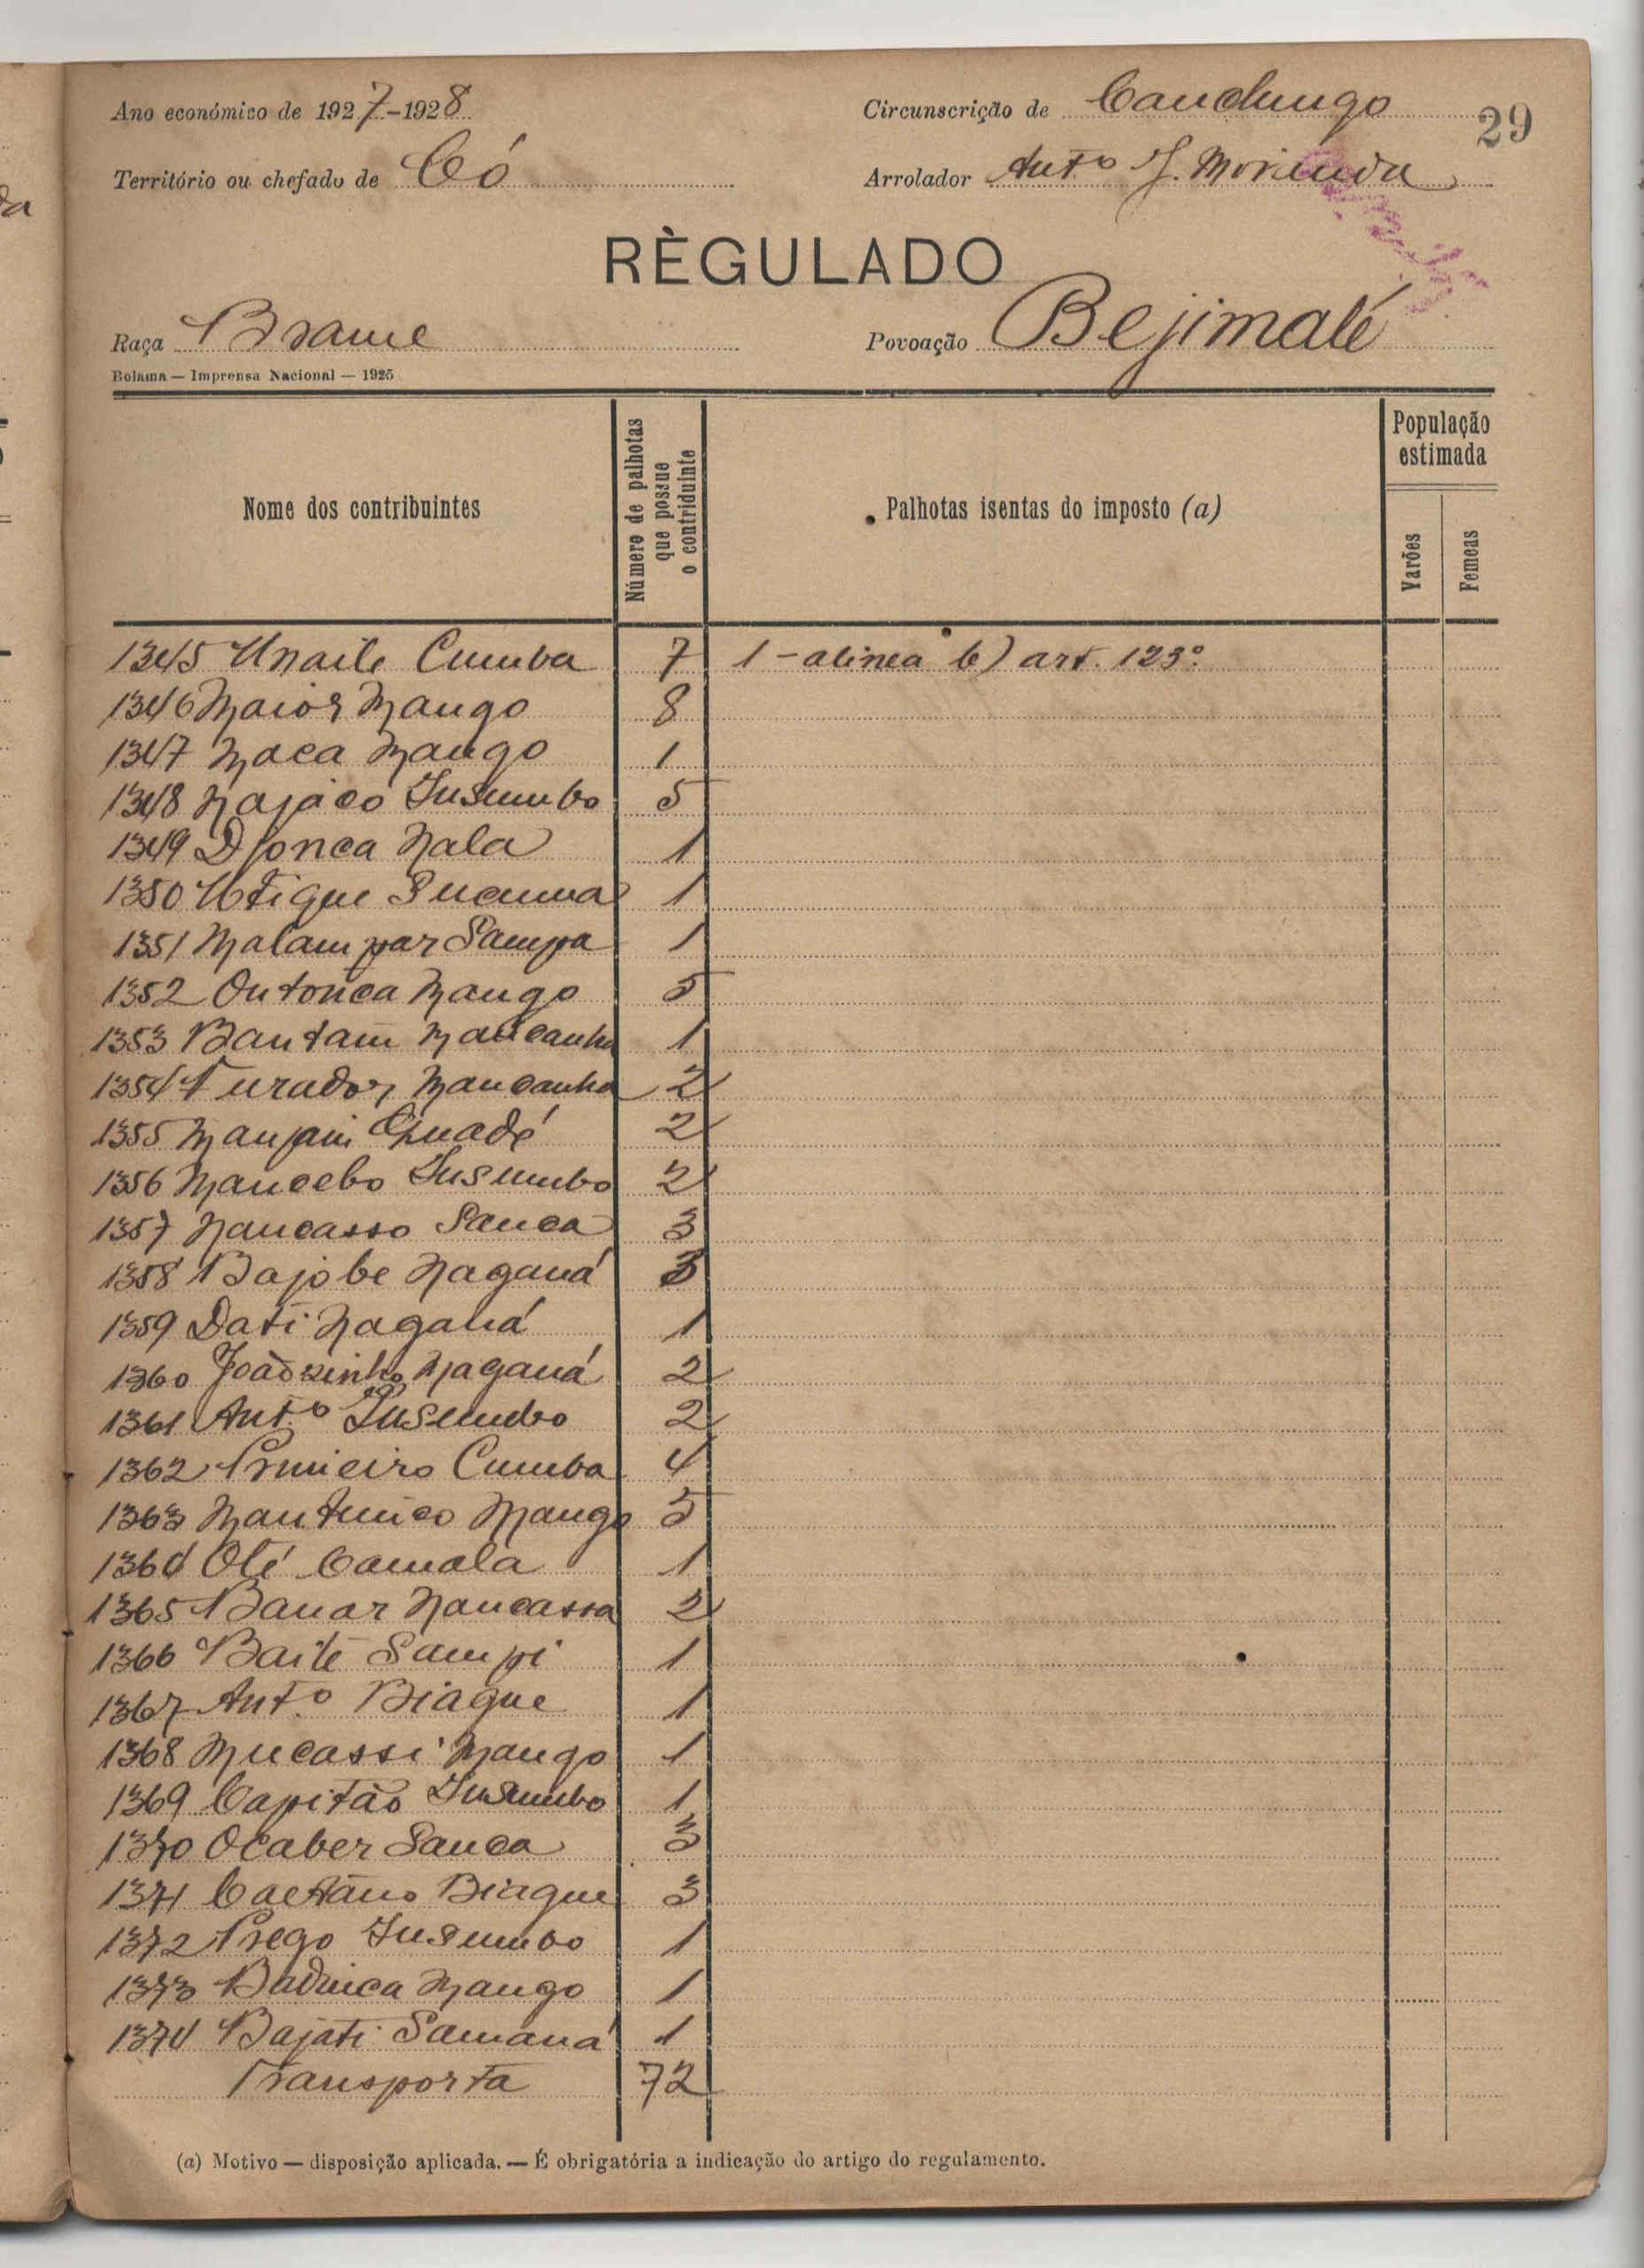 29
Ano económico de 1927-1928
Circunscrição de Canchungo
Território ou chefado de Có
Arrolador Antº J.
RÈGULADO
Raça Brame
Povoação Bejimalé
Bolama — Imprensa Nacional — 1925
Nome dos contribuintes
Número de palhotas que possue o contriduinte
Palhotas isentas do imposto (a)
População estimada
Varões
Femeas
1345 Unaile Cumba 7 1 - alinea b) art. 123º
1346 Maior Mango 8
1347 Maca Mango 1
1348 Najacó Insumbo 5
1349 Djonca Nala 1
1350 1
1351 Malam par Sampa 1
1352 Ontonca Mango 5
1353 Bantam Mancanha 1
1354 Furador Mancanha 2
1355 Manjam Quadé 2
1356 Mancebo Insumbo 2
1357 Nancasso Sanca 3
1358 Bajobe Naganá 3
1359 Dati Naganá 1
1360 Joãosinho Naganá 2
1361 Antº Insumbo 2
1362 Primeiro Cumba 4
1363 Mango 5
1364 Oté Camala 1
1365 Banar Nancassa 2
1366 Baité Sampi 1
1367 Antº Biague 1
1368 Mucassi Mango 1
1369 Capitão Insumbo 1
1370 Ocaber Sanca 3
1371 Caetano Biague 3
1372 Prego Insumbo 1
1373 Mango 1
1374 Bajati Samaná 1
Transporta 72
(a) Motivo — disposição aplicada. — É obrigatória a indicação do artigo do regulamento.